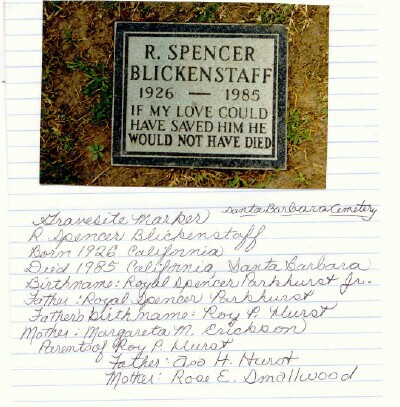 R. SPENCER
BLICKENSTAFF
1926 — 1985
IF MY LOVE COULD
HAVE SAVED HIM HE
WOULD NOT HAVE DIED
Gravesite Marker Santa Barbara Cemetery
R Spencer Blickenstaff
Born 1926 California
Died 1985 California, Santa Barbara
Birthname: Royal Spencer Parkhurst Jr.
Father: Royal Spencer Parkhurst
Father's birth name: Roy P. Hurst
Mother: Margareta M. Erickson
Parents of Roy P. Hurst
Father: Asa H. Hurst
Mother: Rose E. Smallwood